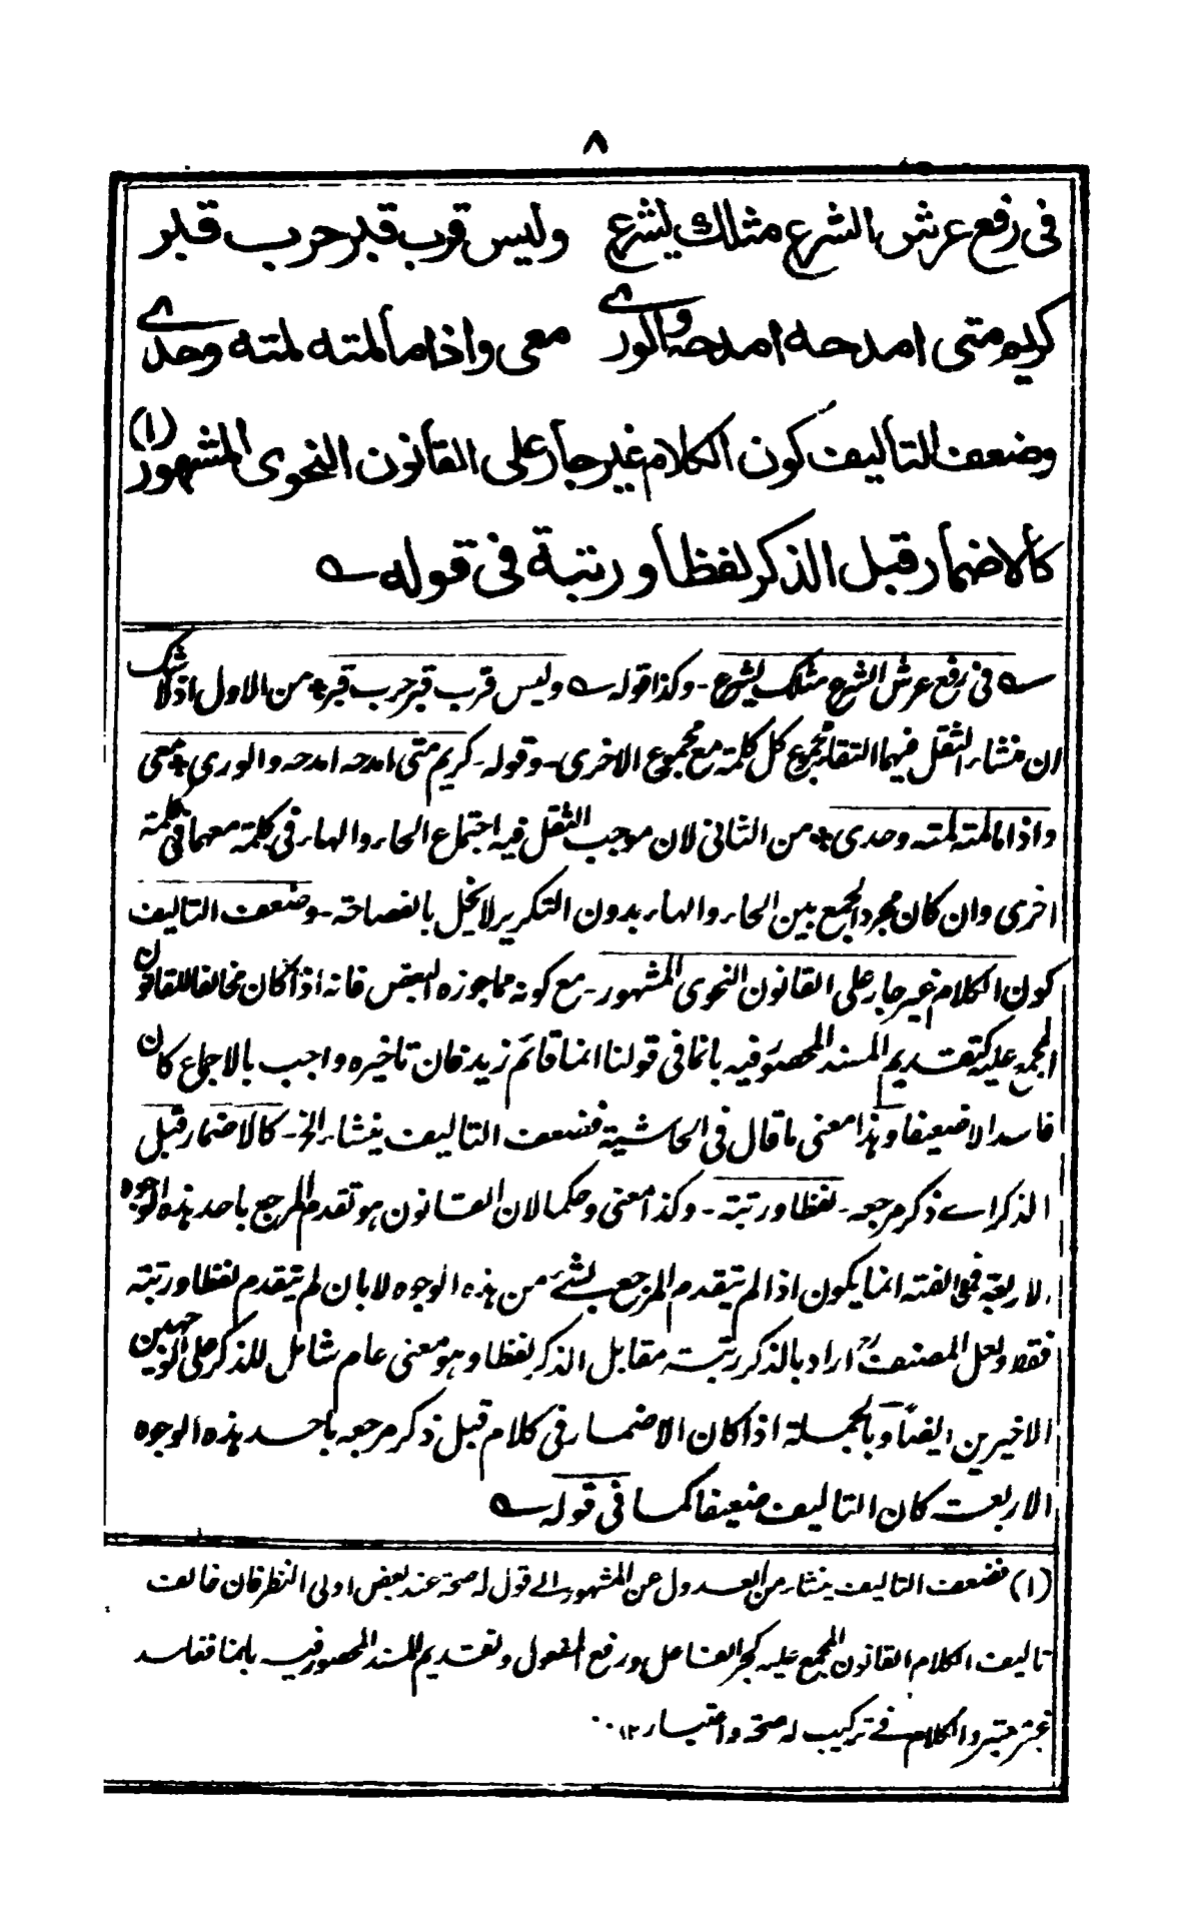 ٨
فى رفع عرش الشرع مثلك يشرع وليس قرب قبر حرب قبر
كريم متى امدحه امدحه والورى معى واذا ما لمته لمته وحدى
وضعف التأليف كون الكلام غير جار على القانون النحوى المشهور (١)
كالاضمار قبل الذكر لفظا ورتبة فى قوله ؎
؎ فى رفع عرش الشرع مثلك يشرع - وكذا قوله ؎ وليس قرب قبر حرب قبر * من الاول اذ لا شك
ان منشاء الثقل فيهما التقاء مجموع كل كلمة مع مجموع الاخرى - وقوله - كريم متى امدحه امدحه والورى * معى
واذا ما لمته لمته وحدى * من الثانى لان موجب الثقل فيه اجتماع الحاء والهاء فى كلمة معهما فى كلمة
اخرى وان كان مجرد الجمع بين الحاء والهاء بدون التكرير لا يخل بالفصاحة - وضعف التاليف
كون الكلام غير جار على القانون النحوى المشهور - مع كونه مما جوزه البعض فانه اذا كان مخالفا للقانون
المجمع عليه كتقديم المسند المحصور فيه بانما فى قولنا انما قائم زيد فان تاخيره واجب بالاجماع كان
فاسدا لا ضعيفا وهذا معنى ما قال فى الحاشية فضعف التاليف ينشاء الخ - كالاضمار قبل
الذكر اے ذكر مرجعه - لفظا ورتبة - وكذا معنى وحكما لان القانون هو تقدم المرجع باحد هذه الوجوه
الاربعة فمخالفته انما يكون اذا لم يتقدم المرجع بشئ من هذه الوجوه لا بان لم يتقدم لفظا ورتبة
فقط ولعل المصنف رح اراد بالذكر رتبة مقابل الذكر لفظا وهو معنى عام شامل للذكر على الوجهين
الاخيرين ايضاً وبالجملة اذا كان الاضمار فى كلام قبل ذكر مرجعه باحد هذه الوجوه
الاربعة كان التاليف ضعيفا كما فى قوله ؎
(١) فضعف التاليف ينشاء من العدول عن المشهور الے قول له صحة عند بعض اولى النظر فان خالف
تاليف الكلام القانون المجمع عليه كجر الفاعل ورفع المفعول وتقديم المسند المحصور فيه بانما ففاسد
غير معتبر والكلام فے تركيب له صحة واعتبار ١٢